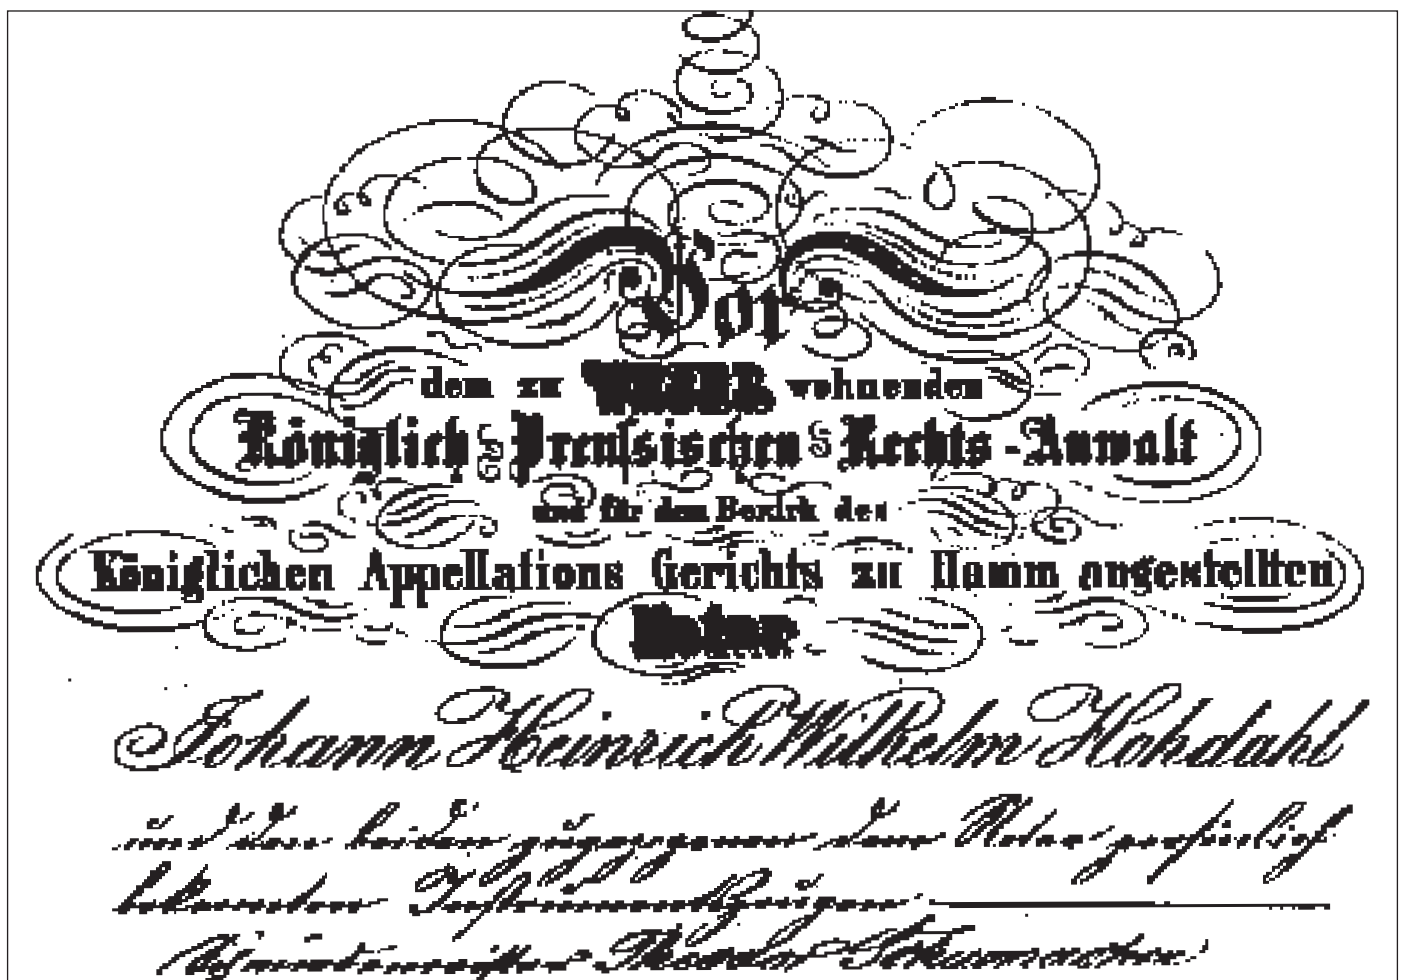 Vor
dem zu WESEL wohnenden
Königlich Preuſsischen Rechts-Anwalt
und für den Bezirk des
Königlichen Appellations Gerichts zu Hamm angestellten
Notar
Johann Heinrich Wilhelm Hohdahl
und den beiden zugezogenen dem Notar persönlich
bekannten Instrumentszeugen
Theodor